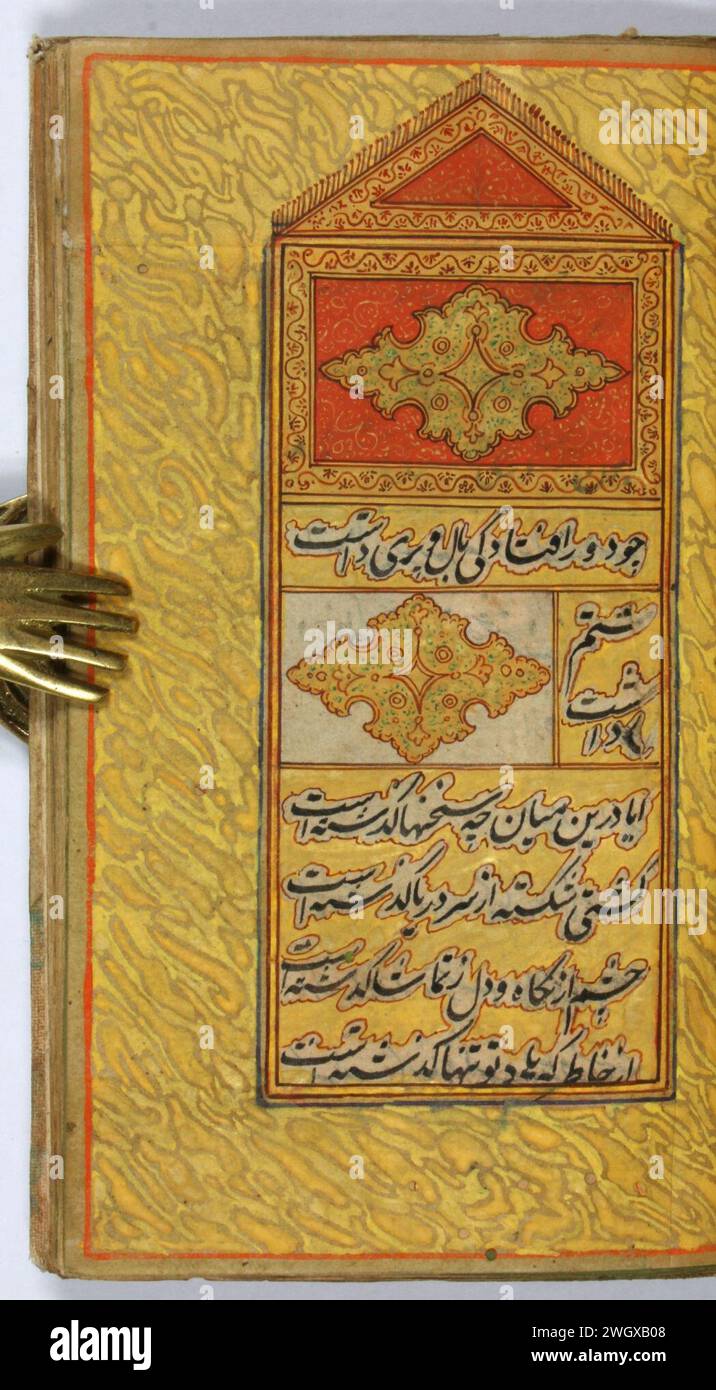 چو دور افتادکی بال و پری داشت
ایا درین میان چه سخنها کذشته است
کشتی شکسته از سر دریا کذشته است
چشم از نکاه و دل ز تماشا کذشته است
از خاطر که یاد تو تنها کذشته است
alamy
Image ID: 2WGXB08
www.alamy.com